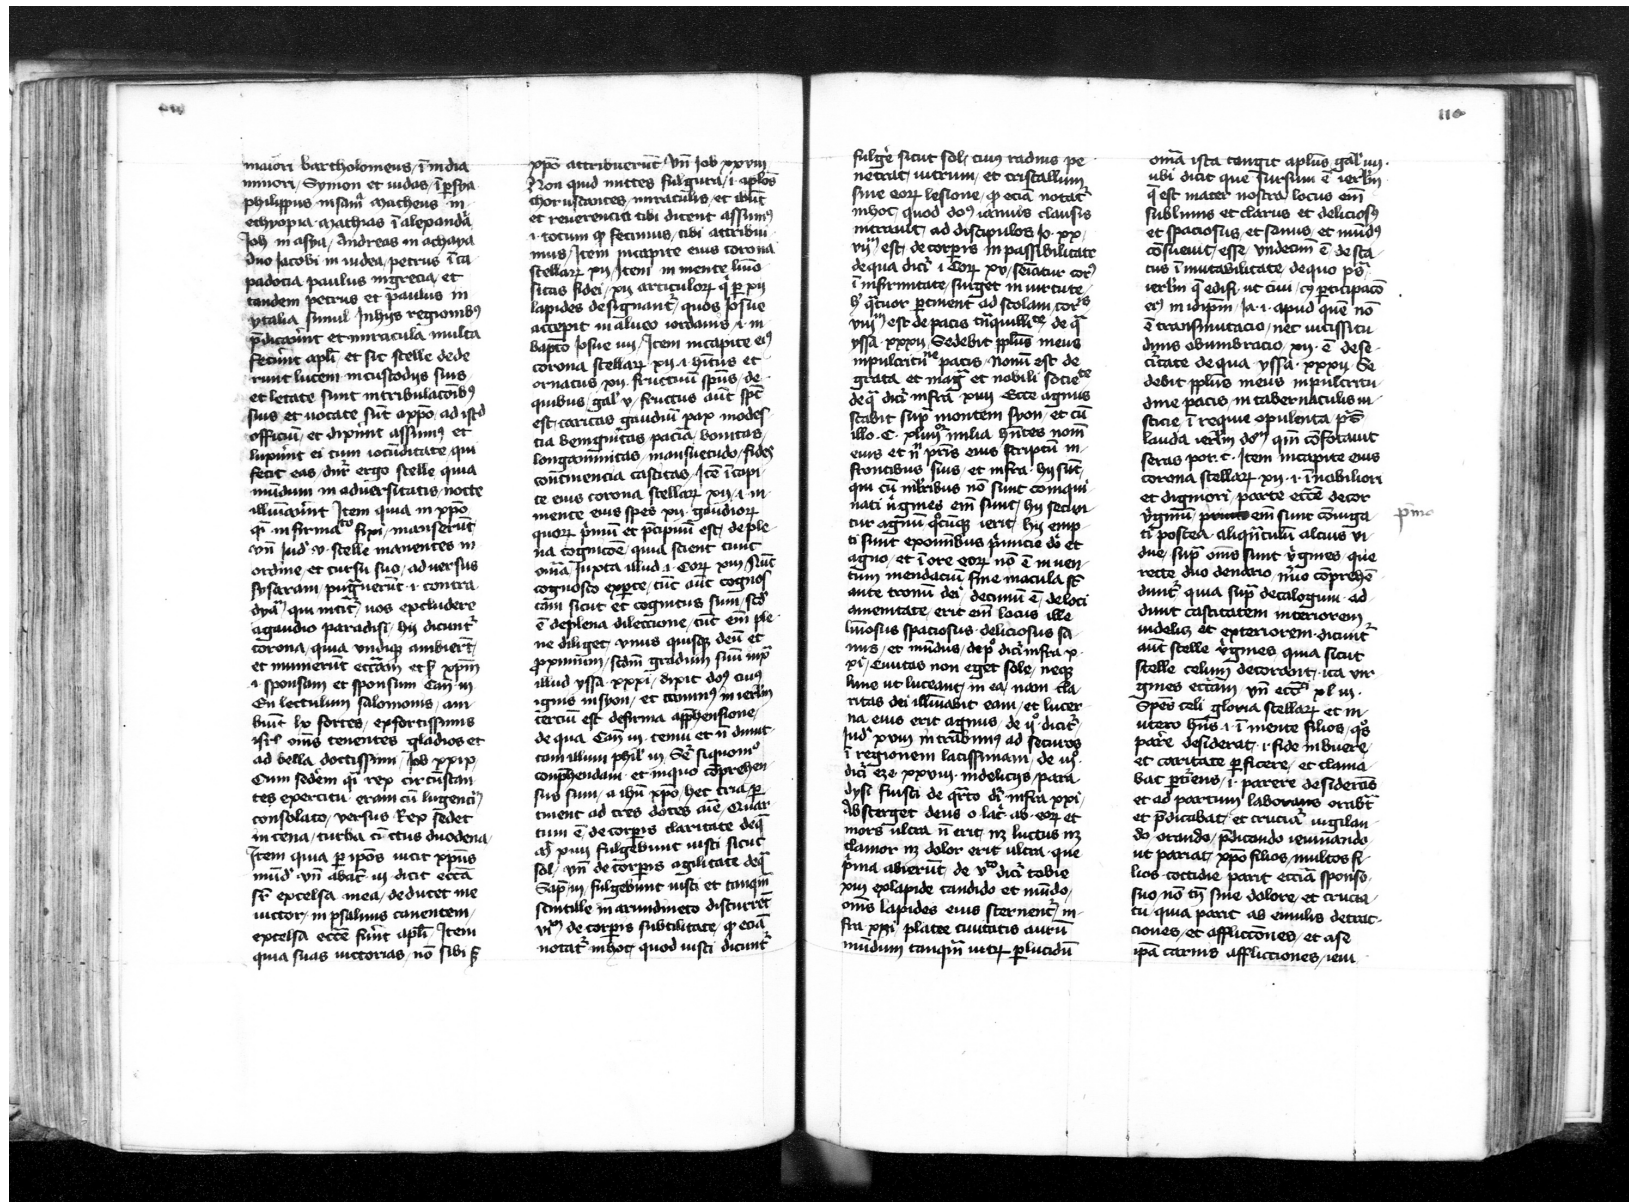 110
maiori bartholomeus / ī india
minori / Symon et iudas / ī ꝑsida
philippus in samr̄ Matheus in
ethyopia Mathias ī alexandr̄
Joh̄ in asya / Andreas in achaya
duo Jacobi in iudea / petrus ī ca
padocia paulus in grecia / et
tandem petrus et paulus in
ytalia simul Inhijs regionibꝰ
p̄dicaūint et miracula multa
fecūnt apl̄i et sic stelle dede
runt lucem in custodijs suis
et letate sunt in tribulac̄oībꝰ
suis et uocate sūt a xp̄o / ad istd̄
officiū / et dixūnt assumꝰ et
luxūnt ei cum iocūditate / qui
fecit eas / dn̄r ergo stelle quia
mūdum in aduersitatis / nocte
illūaūint Item quia in xp̄o
fixi / manserūt
vn̄ Jud̄ v · stelle manentes in
ordine / et cursu suo / aduersus
sysaram / pugn̄uerūt · i · contra
dya᷑ / qui nitit᷑ / uos excludere
agaudio paradisi / hij dicunt᷑
corona / quia undiqꝫ ambiert̄ /
et munierūt ecc̄iam
· i · sponsam et sponsum Can̄ · iii
En lectulum salomonis / am
biūt lx fortes / ex fortissimis
isrl̄ om̄s tenentes gladios et
ad bella doctissimi / Job xxix /
Cum sedēm qͥ rex circūstan
tes exercitu · eram cū lugenciꝰ
consolator / versus Rex sedet
in cena / turba cīctus duodena /
Item quia ꝑ ip̄os uicit xp̄us
mūd᷑ vn̄ abac᷑ · iii dicit ecc̄a
sr̄ excelsa mea / deducet me
uictor / in psalmis canentem /
excelsa ecc̄e fūnt apl̄i Item
quia suas uictorias / nō sibi
xp̄o attribuerūt vn̄ Job xxxviii
Non quid mittes fulgura / · i · apl̄os
choruscantes / miraculis / et ibūt
et reuerencia tibi dicent assumꝰ
· i · totum qͩ fecimus / tibi attribui
mus / Item in capite eius corona
stellarꝝ xij / Item in mente lūo
sitas fidei / xij articulorꝝ ꝙ ꝑ xij
lapides designant᷑ / quos Josue
accepit in alueo iordanis / · i · in
bapt̄o Josue iiii / Item in capite eiꝰ
corona stellarꝝ · xij · i · hītus et
ornatus · xij · fructuū sp̄us / de
quibus / gal̄ · v / fructus aūt sp̄c
est / caritas gaudiū pax modes
tia benignitas paciā / bonitas /
longanimitas / mansuetudo / fides
con̄tinencia castitas / Itē ī capi
te eius corona stellarꝝ xij · i · in
mente eius spes xij · gaudiorꝝ
quorꝝ p̄mū et p̄cipuū est / de ple
na cognicōe / quia scient cuncta
om̄a / Iuxta illud · i · Corꝝ xiii / Nūc
cognosco ex ꝑte / tūc aūt cognos
cam sicut et cognitus sum / scd̄
ē de plena dileccione / tūc em̄ ple
ne diliget / vnus quisqꝫ deū et
ꝓximum / scdm̄ gradum suū
illud ysa · xxxi / dixit dn̄s cuius
ignis in syon / et caminꝰ in ierl̄m
terciū est de firma app̄hensione /
de qua Can̄ · iii · tenui et n̄ dimit
tam illum phil̄ · iii · Seqͬ si quomō
conp̄hendam / et in quo cōprehen
sus sum / a ihū xp̄o / hec tria / ꝑ
tinent ad tres dotes aīe / Quar
tum ē / de corꝑis claritate de qͣ
Mͭ xiii fulgebunt iusti sicut
sol / vn̄ de corꝑis agilitate de qͣ
Sap̄ · iii / fulgebunt iusti et tanqͣm
scintille in arundineto discurrēt
viᵐ / de corꝑis subtilitate / ꝙ eciā
notat᷑ in hoc / quod iusti dicunt᷑
fulgēe sicut sol / cuius radius pe
netrat / uitrum / et cristallum
sine eorꝝ lesione / ꝙ eciam notat᷑
in hoc / quod dn̄s ianuis clausis
intrauit / ad discipulos Jo · xx /
viiᵐ est / de corꝑis in passibilitate
de qua dicit᷑ · i · Corꝝ xv / semīatur corꝰ
ī infirmitate / surget in uirtute /
hͦ qͣtuor ꝑtinent ad stolam corꝑis
viiiᵐ est de pacis tn̄quillitᵗᵉ de qͣ
yssa · xxxii / Sedebit pp̄lus meus
in pulcritudīe pacis · Nonū est de
grata et magͣ et nobili societᵗᵉ
de qͣ dicit᷑ infra xiiii Ecce agnus
stabit supra montem syon / et cū
illo · C · xliiiiᵒʳ milia hn̄tes nom̄
eius et nͫ pr̄is eius scriptū in
frontibus suis / et infra · hij sūt /
qui cū ml̄ribus nō sunt coinqui
nati v̄gines em̄ sunt / hij secun
tur agnū qͦcūqꝫ ierit / hij emp
ti sunt ex omībus p̄micie dō et
agno / et ī ore eorꝝ nō ē inuen
tum mendaciū sine macula sūt
ante tronū dei decimū ē / de loci
amenitate / erit em̄ locus ille
lūosus spaciosus · deliciosus sa
nus / et mūdus / de pͦ dicit᷑ infra x
xi / Ciuitas non eget sole / neqꝫ
lune ut luceant / in ea / nam cla
ritas dei illūabit eam / et lucer
na eius erit agnus / de iiͦ · dicit᷑ /
Jud᷑ xviii intrābimus ad securos
ī regionem latissimam / de iiiͦ
dicit᷑ eze xxviii indelicijs / para
dysi fuisti de qͣrto dr̄ infra xxi /
Absterget deus o · lac᷑ · ab · eorꝝ et
mors ultra n̄ erit / nꝫ luctus nꝫ
clamor nꝫ dolor erit ultra · que
p̄ma abierūt / de vᵗᵒ dicit᷑ tobie
xiii ex lapide candido et mūdo /
om̄s lapides eius sternent᷑ / in
fra xxi / platee ciuitatis aurū
mūdum tanqͣm uitrū ꝑlucidū
om̄a ista tangit apl̄us / gal̄ iiii ·
ubi dicit que sursum ē ierl̄m
q̄ est mater nostra locus em̄
sublimis et clarus et deliciosꝰ
et spaciosus / et sanus / et mūdꝰ
cōsueuit / esse vndecim ē de sta
tus ī mutabilitate / de quo ps̄ ·
ierl̄m q̄ edifi · ut ciui / cꝰ ꝑticipacō
eiꝰ in idip̄m / Ja · i · apud quē nō
ē transmutacio / nec uicissitu
dinis obumbracio xij · ē de se
curitate de qua yssa · xxxii / Se
debit pp̄lus meus in pulcritu
dine pacis / in tabernaculis iu
sticie ī requie opulenta / ps̄
lauda ierl̄m dn̄m / qm̄ cōfortauit
seras por · t · Item in capite eius
corona stellarꝝ xij · i · ī nobiliori
et digniori / parte ecc̄e decor
v̄ginū / em̄ sunt cōiuga
ti postea aliqn̄tulū alcius vi
due / supͣ om̄s sunt v̄gines / que
recte duo denario / nūo cōprehē
dunt᷑ / quia supͣ decalogum · ad
dunt castitatem interiorem /
uidelicꝫ et exteriorem · dicūnt᷑
aūt stelle v̄gines quia sicut
stelle celum decorant / ita vir
gines ecc̄iam / vn̄ ecc̄i xl iii ·
Sp̄es celi gloria stellarꝝ et in
utero hn̄s · i · ī mente filios / qͦs
parēe desiderat · i · fide inbuere /
et caritate ꝑficere / et clama
bat ꝑtūens / · i · parere desiderās
et ad partum laborans orabat᷑
et p̄dicabat / et cruciat᷑ uigilan
do · orando / p̄dicando ieiunando
ut pariat / xp̄o filios / multos fi
lios cottidie parit ecc̄ia sponso /
suo nō tn̄ sine dolore / et crucia
tu / quia parit ab emulis detrac
ciones / et afflicc̄ones / et a se
ip̄a carnis afflicciones / ieiu
pͥmo